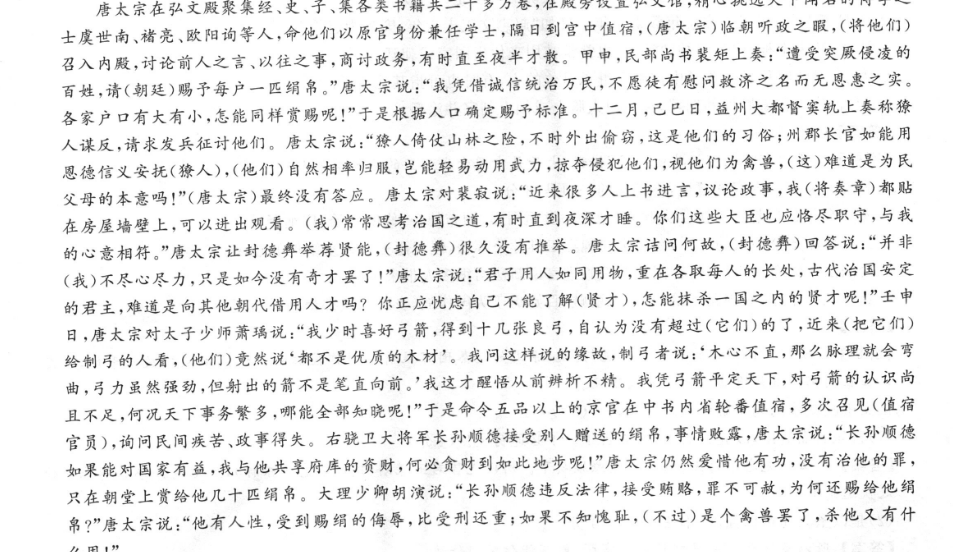 唐太宗在弘文殿聚集经、史、子、集各类书籍共二十多万卷,在殿旁设置弘文馆,精心挑选天下闻名的博学之
士虞世南、褚亮、欧阳询等人,命他们以原官身份兼任学士,隔日到宫中值宿,(唐太宗)临朝听政之暇,(将他们)
召入内殿,讨论前人之言、以往之事,商讨政务,有时直至夜半才散。甲申,民部尚书裴矩上奏:“遭受突厥侵凌的
百姓,请(朝廷)赐予每户一匹绢帛。”唐太宗说:“我凭借诚信统治万民,不愿徒有慰问救济之名而无恩惠之实。
各家户口有大有小,怎能同样赏赐呢!”于是根据人口确定赐予标准。十二月,己巳日,益州大都督窦轨上奏称獠
人谋反,请求发兵征讨他们。唐太宗说:“獠人倚仗山林之险,不时外出偷窃,这是他们的习俗;州郡长官如能用
恩德信义安抚(獠人),(他们)自然相率归服,岂能轻易动用武力,掠夺侵犯他们,视他们为禽兽,(这)难道是为民
父母的本意吗!”(唐太宗)最终没有答应。唐太宗对裴寂说:“近来很多人上书进言,议论政事,我(将奏章)都贴
在房屋墙壁上,可以进出观看。(我)常常思考治国之道,有时直到夜深才睡。你们这些大臣也应恪尽职守,与我
的心意相符。”唐太宗让封德彝举荐贤能,(封德彝)很久没有推举。唐太宗诘问何故,(封德彝)回答说:“并非
(我)不尽心尽力,只是如今没有奇才罢了!”唐太宗说:“君子用人如同用物,重在各取每人的长处,古代治国安定
的君主,难道是向其他朝代借用人才吗?你正应忧虑自己不能了解(贤才),怎能抹杀一国之内的贤才呢!”壬申
日,唐太宗对太子少师萧瑀说:“我少时喜好弓箭,得到十几张良弓,自认为没有超过(它们)的了,近来(把它们)
给制弓的人看,(他们)竟然说‘都不是优质的木材’。我问这样说的缘故,制弓者说:‘木心不直,那么脉理就会弯
曲,弓力虽然强劲,但射出的箭不是笔直向前。’我这才醒悟从前辨析不精。我凭弓箭平定天下,对弓箭的认识尚
且不足,何况天下事务繁多,哪能全部知晓呢!”于是命令五品以上的京官在中书内省轮番值宿,多次召见(值宿
官员),询问民间疾苦、政事得失。右骁卫大将军长孙顺德接受别人赠送的绢帛,事情败露,唐太宗说:“长孙顺德
如果能对国家有益,我与他共享府库的资财,何必贪财到如此地步呢!”唐太宗仍然爱惜他有功,没有治他的罪,
只在朝堂上赏给他几十匹绢帛。大理少卿胡演说:“长孙顺德违反法律,接受贿赂,罪不可赦,为何还赐给他绢
帛?”唐太宗说:“他有人性,受到赐绢的侮辱,比受刑还重;如果不知愧耻,(不过)是个禽兽罢了,杀他又有什
么用!”